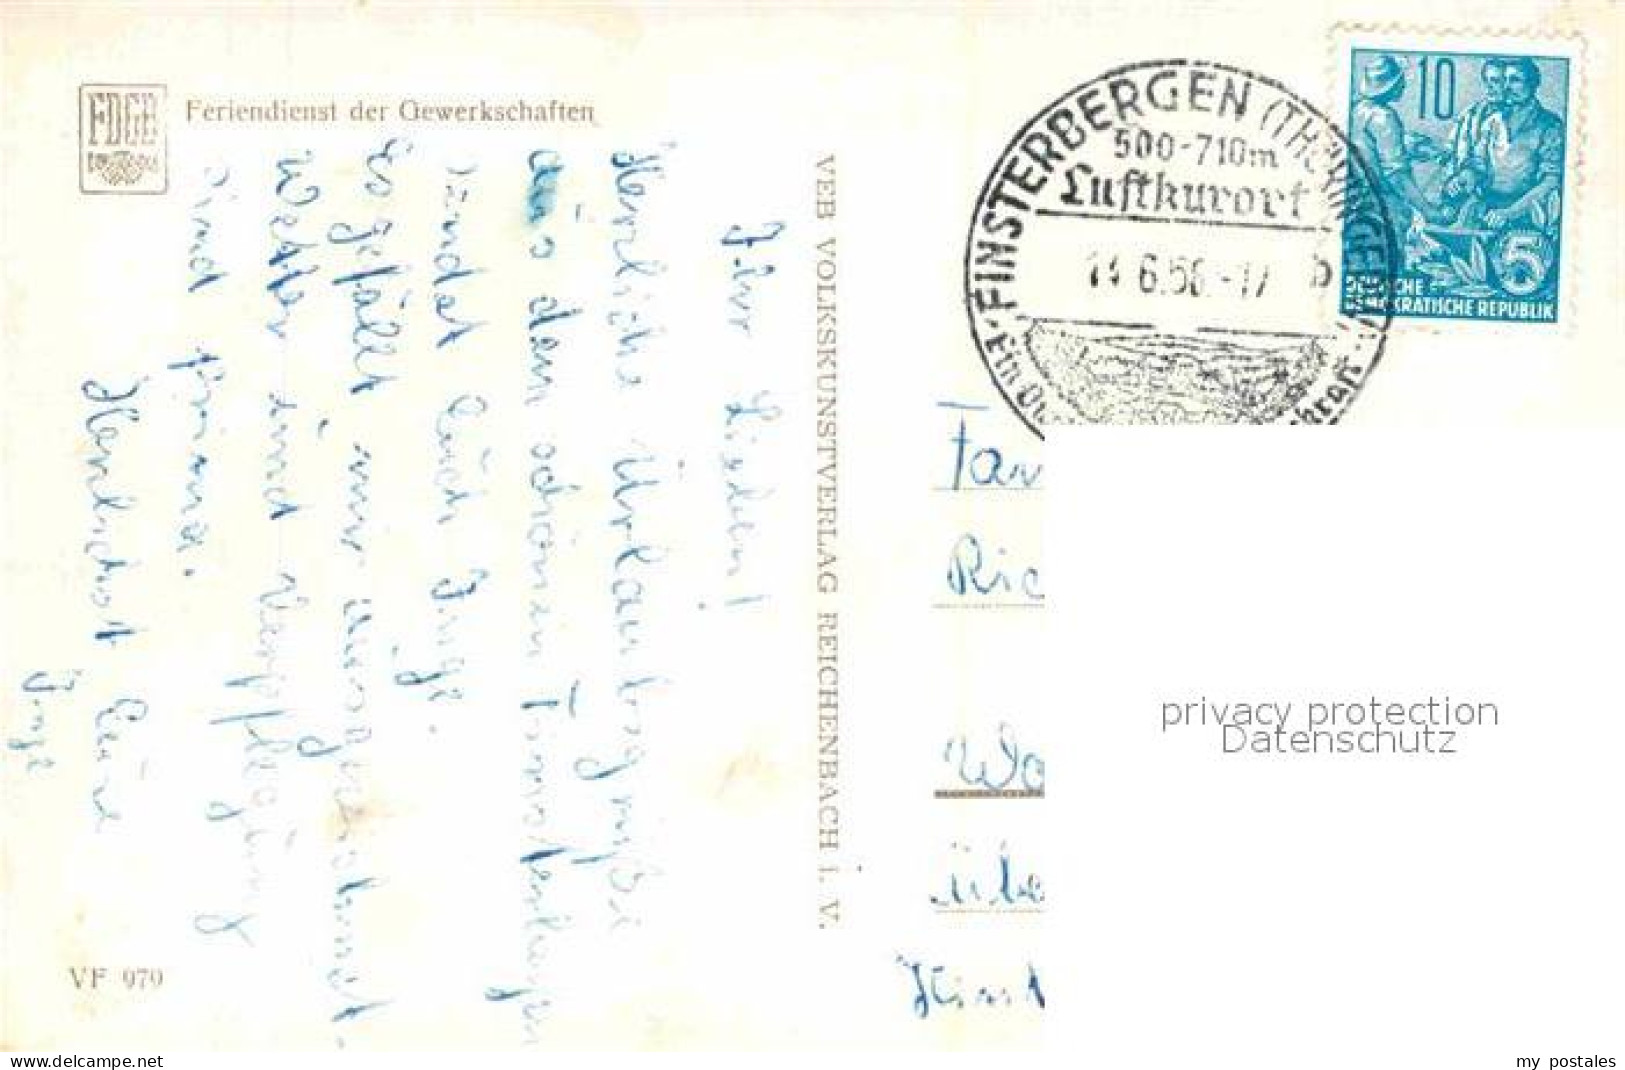 FDGB
Feriendienst der Gewerkschaften
Ihr Lieben!
Herzliche Urlaubsgrüße
aus dem schönen Finsterbergen
sendet Euch Inge.
Es gefällt mir ausgezeichnet.
Wetter und Verpflegung
sind prima.
Herzlichst Eure
Inge
VF 970
VEB VOLKSKUNSTVERLAG REICHENBACH I. V.
FINSTERBERGEN (THÜRINGEN)
500-710m
Luftkurort
6.56.-17 b
10
5
DEUTSCHE
DEMOKRATISCHE REPUBLIK
Fam
Ric
übe
privacy protection
Datenschutz
www.ansichtskartenversand.com
my postales